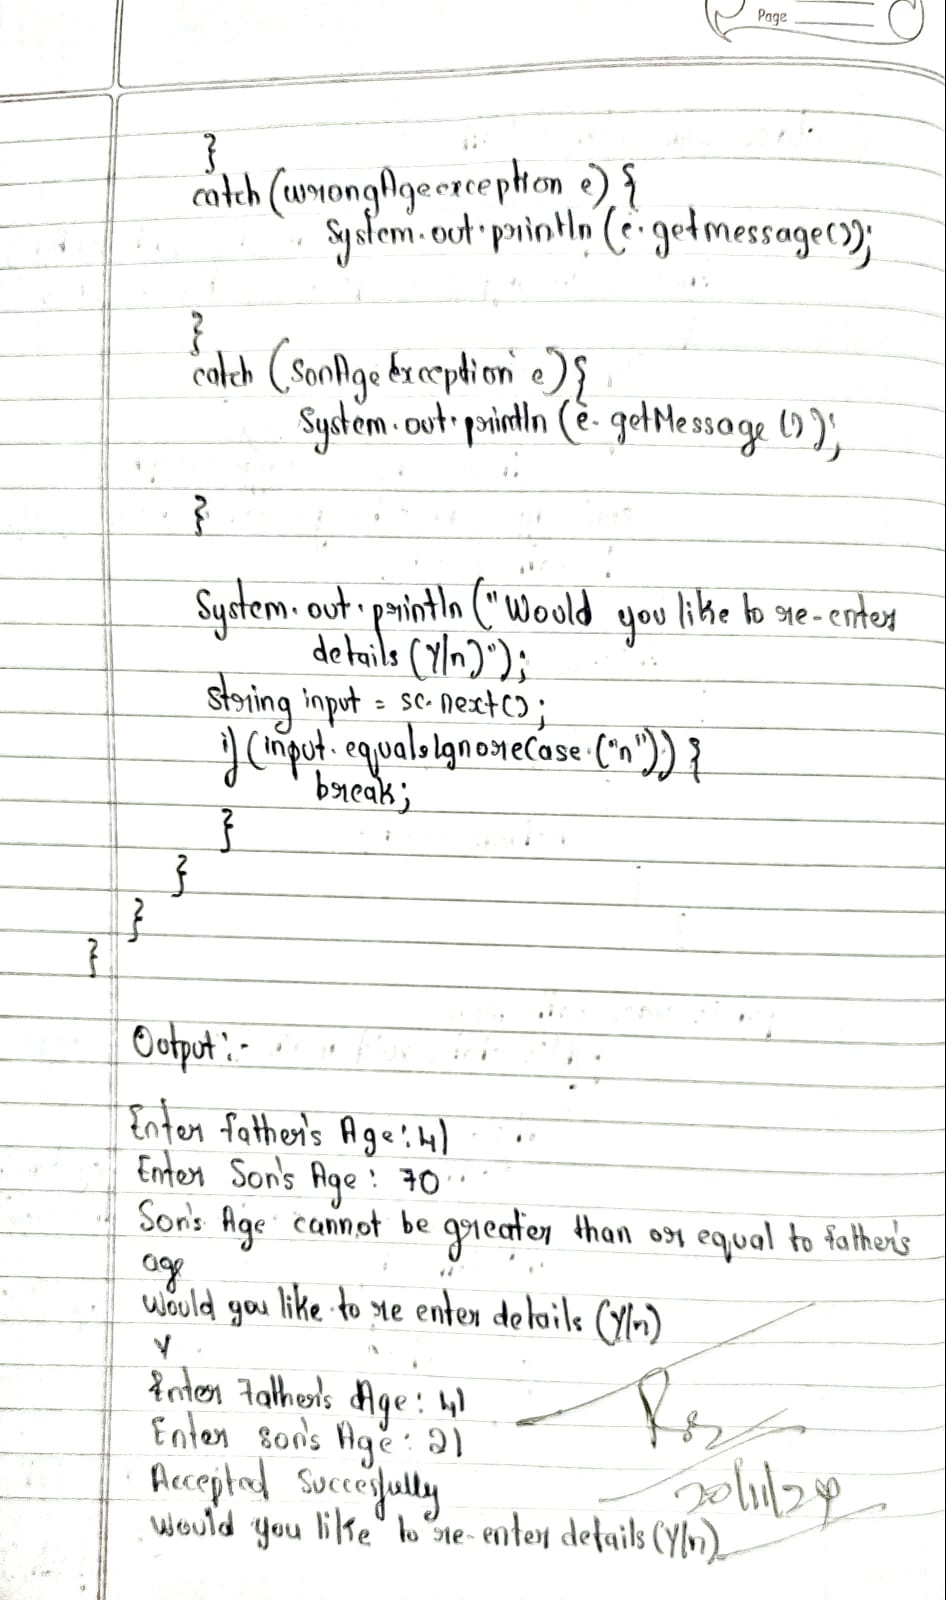 Page
}
catch (wrongAgeexception e) {
System.out.println (e.getmessage());
}
catch (SonAge Exception e) {
System.out.println (e.getMessage ());
}
System.out.println ("Would you like to re-enter
details (Y/n)");
string input = sc.next();
if (input.equalsIgnoreCase.("n")) {
break;
}
}
}
}
Output:-
Enter father's Age: 41
Enter Son's Age: 70
Son's Age cannot be greater than or equal to father's
age
Would you like to re enter details (Y/n)
Y
Enter Father's Age: 41
Enter son's Age: 21
Accepted Succesfully
would you like to re-enter details (Y/n)
20/11/24